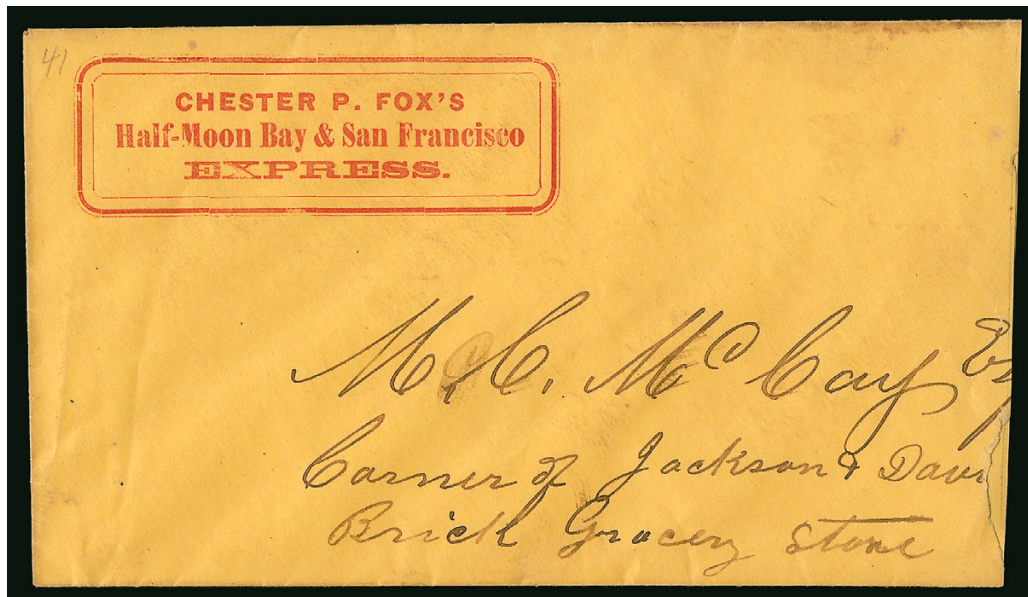 41
CHESTER P. FOX'S
Half-Moon Bay & San Francisco
EXPRESS.
M. C. McCay Es
Corner of Jackson & Davi
Brick Grocery Store